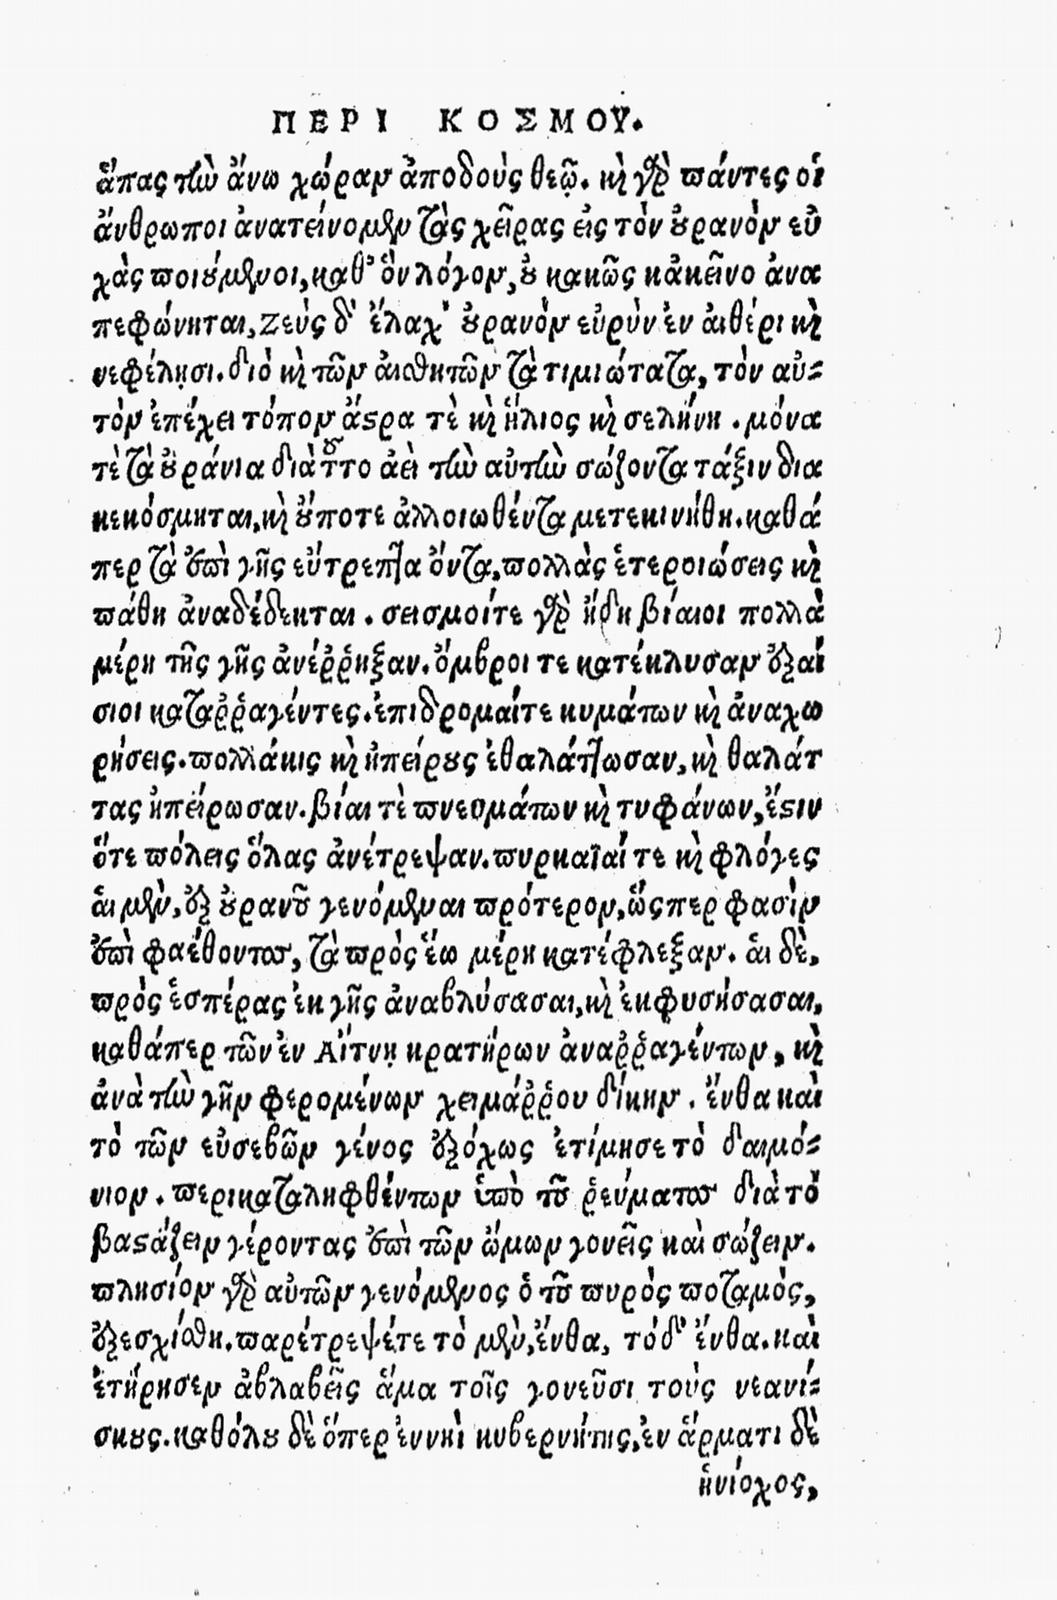 ΠΕΡΙ ΚΟΣΜΟΥ.
ἅπας τὴν ἄνω χώραν ἀποδοὺς θεῷ. καὶ γὰρ πάντες οἱ
ἄνθρωποι ἀνατείνομεν τὰς χεῖρας εἰς τὸν οὐρανὸν εὐ
χὰς ποιούμενοι, καθ' ὃν λόγον, οὐ κακῶς κἀκεῖνο ἀνα
πεφώνηται, Ζεὺς δ' ἔλαχ' οὐρανὸν εὐρὺν ἐν αἰθέρι καὶ
νεφέλῃσι. διὸ καὶ τῶν αἰσθητῶν τὰ τιμιώτατα, τὸν αὐ-
τὸν ἐπέχει τόπον ἄστρα τὲ καὶ ἥλιος καὶ σελήνη. μόνα
τὲ τὰ οὐράνια διὰ τοῦτο ἀεὶ τὴν αὐτὴν σώζοντα τάξιν δια
κεκόσμηται, καὶ οὔποτε ἀλλοιωθέντα μετεκινήθη. καθά
περ τὰ ἐπὶ γῆς εὔτρεπτα ὄντα, πολλὰς ἑτεροιώσεις καὶ
πάθη ἀναδέδεκται. σεισμοίτε γὰρ ἤδη βίαιοι πολλὰ
μέρη τῆς γῆς ἀνέῤῥηξαν. ὄμβροι τε κατέκλυσαν ἐξαί
σιοι καταῤῥαγέντες. ἐπιδρομαίτε κυμάτων καὶ ἀναχω
ρήσεις. πολλάκις καὶ ἠπείρους ἐθαλάττωσαν, καὶ θαλάτ
τας ἠπείρωσαν. βίαι τὲ πνευμάτων καὶ τυφάνων, ἔστιν
ὅτε πόλεις ὅλας ἀνέτρεψαν. πυρκαϊαί τε καὶ φλόγες
αἱ μὲν, ἐξ οὐρανοῦ γενόμεναι πρότερον, ὥςπερ φασὶν
ἐπὶ φαέθοντος, τὰ πρὸς ἕω μέρη κατέφλεξαν. αἱ δὲ,
πρὸς ἑσπέρας ἐκ γῆς ἀναβλύσασαι, καὶ ἐκφυσήσασαι,
καθάπερ τῶν ἐν Αἴτνῃ κρατήρων ἀναῤῥαγέντων, καὶ
ἀνὰ τὴν γῆν φερομένων χειμάῤῥου δίκην. ἔνθα καὶ
τὸ τῶν εὐσεβῶν γένος ἐξόχως ἐτίμησε τὸ δαιμό-
νιον. περικαταληφθέντων ὑπὸ τοῦ ῥεύματος διὰ τὸ
βαστάζειν γέροντας ἐπὶ τῶν ὤμων γονεῖς καὶ σώζειν.
πλησίον γὰρ αὐτῶν γενόμενος ὁ τοῦ πυρὸς ποταμὸς,
ἐξεσχίσθη. παρέτρεψέτε τὸ μὲν, ἔνθα, τὸ δ' ἔνθα. καὶ
ἐτήρησεν ἀβλαβεῖς ἅμα τοῖς γονεῦσι τοὺς νεανί-
σκους. καθόλου δὲ ὅπερ ἐν νηῒ κυβερνήτης, ἐν ἅρματι δὲ
ἡνίοχος,